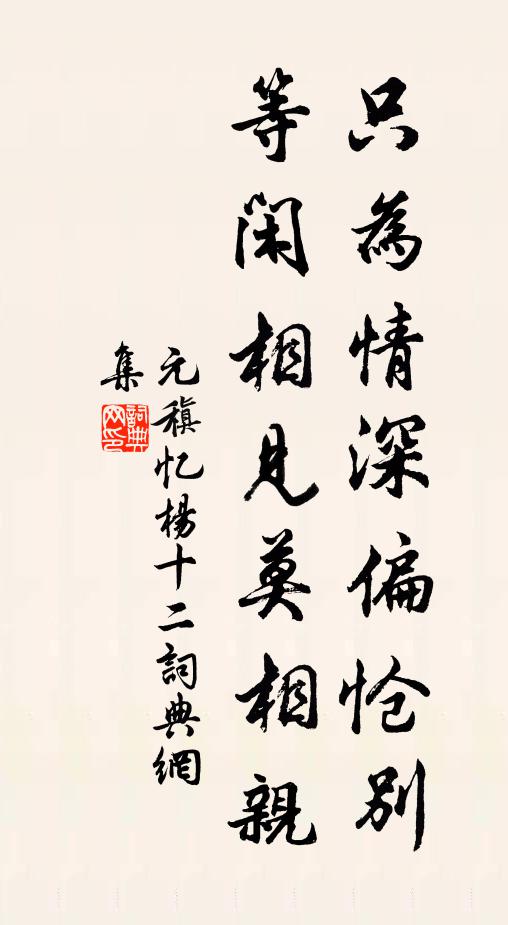 只為情深偏怆別
等闲相見莫相親
元稹忆楊十二詞典網
集
詞典网印